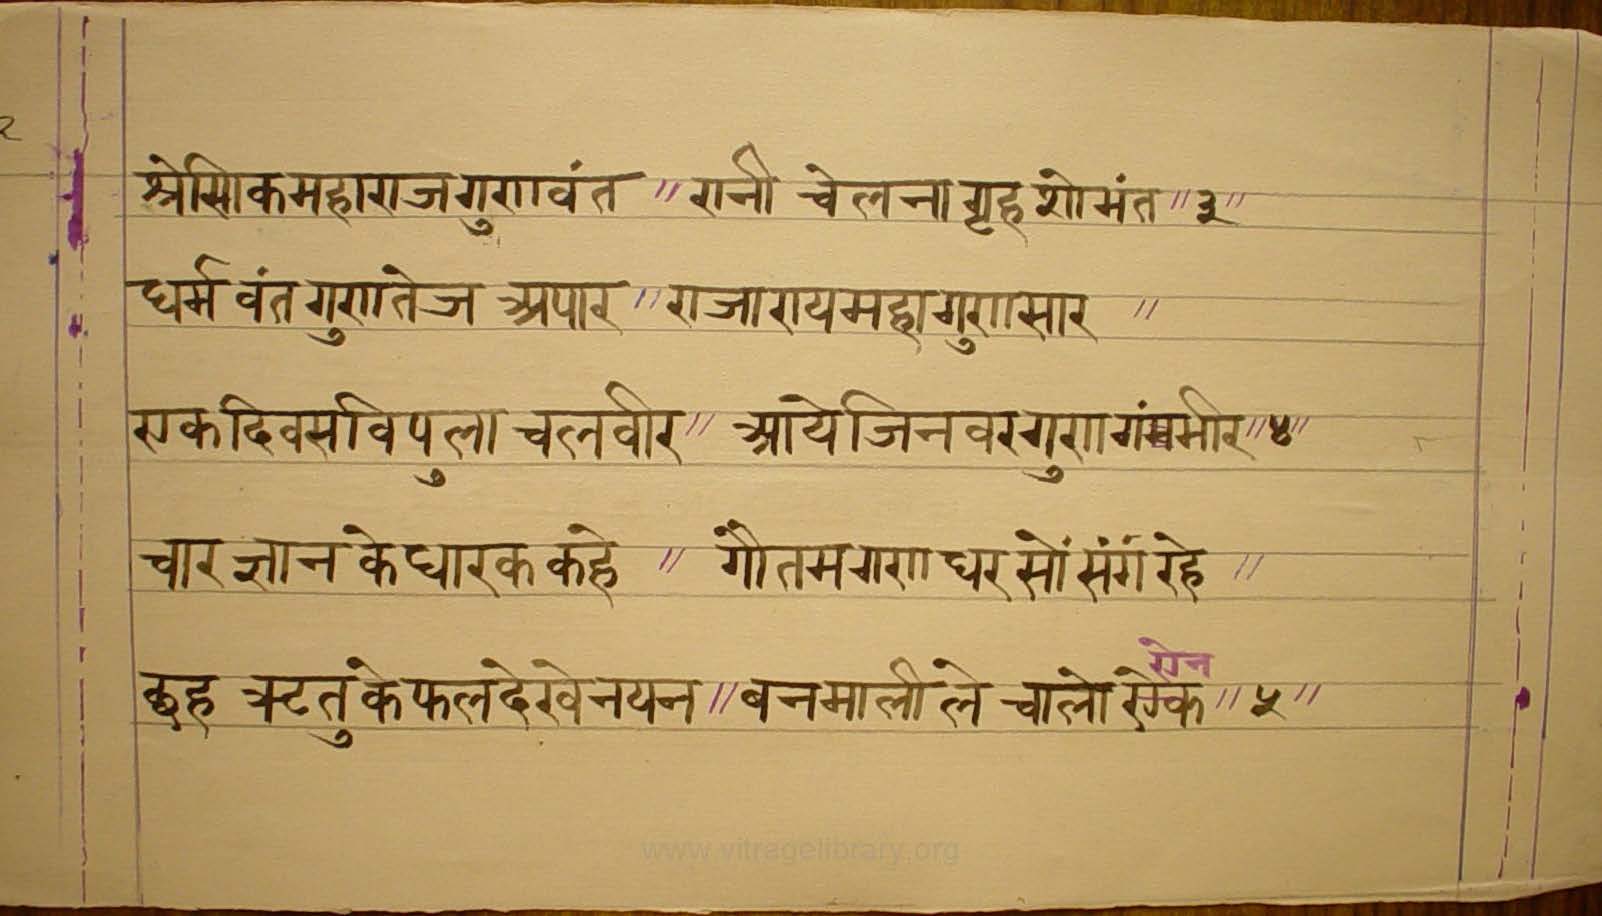 २
श्रेणिक महाराज गुणवंत ॥ रानी चेलना गृह शोभंत ॥ ३ ॥
धर्मवंत गुण तेज अपार ॥ राजा राय महा गुणसार ॥
एक दिवस विपुलाचल वीर ॥ आये जिनवर गुण गंभीर ॥ ४ ॥
चार ज्ञान के धारक कहे ॥ गौतम गणधर सों संग रहे ॥
ऐन
छह ऋतु के फल देखे नयन ॥ वनमाली ले चालो ऐक ॥ ५ ॥
www.vitragelibrary.org